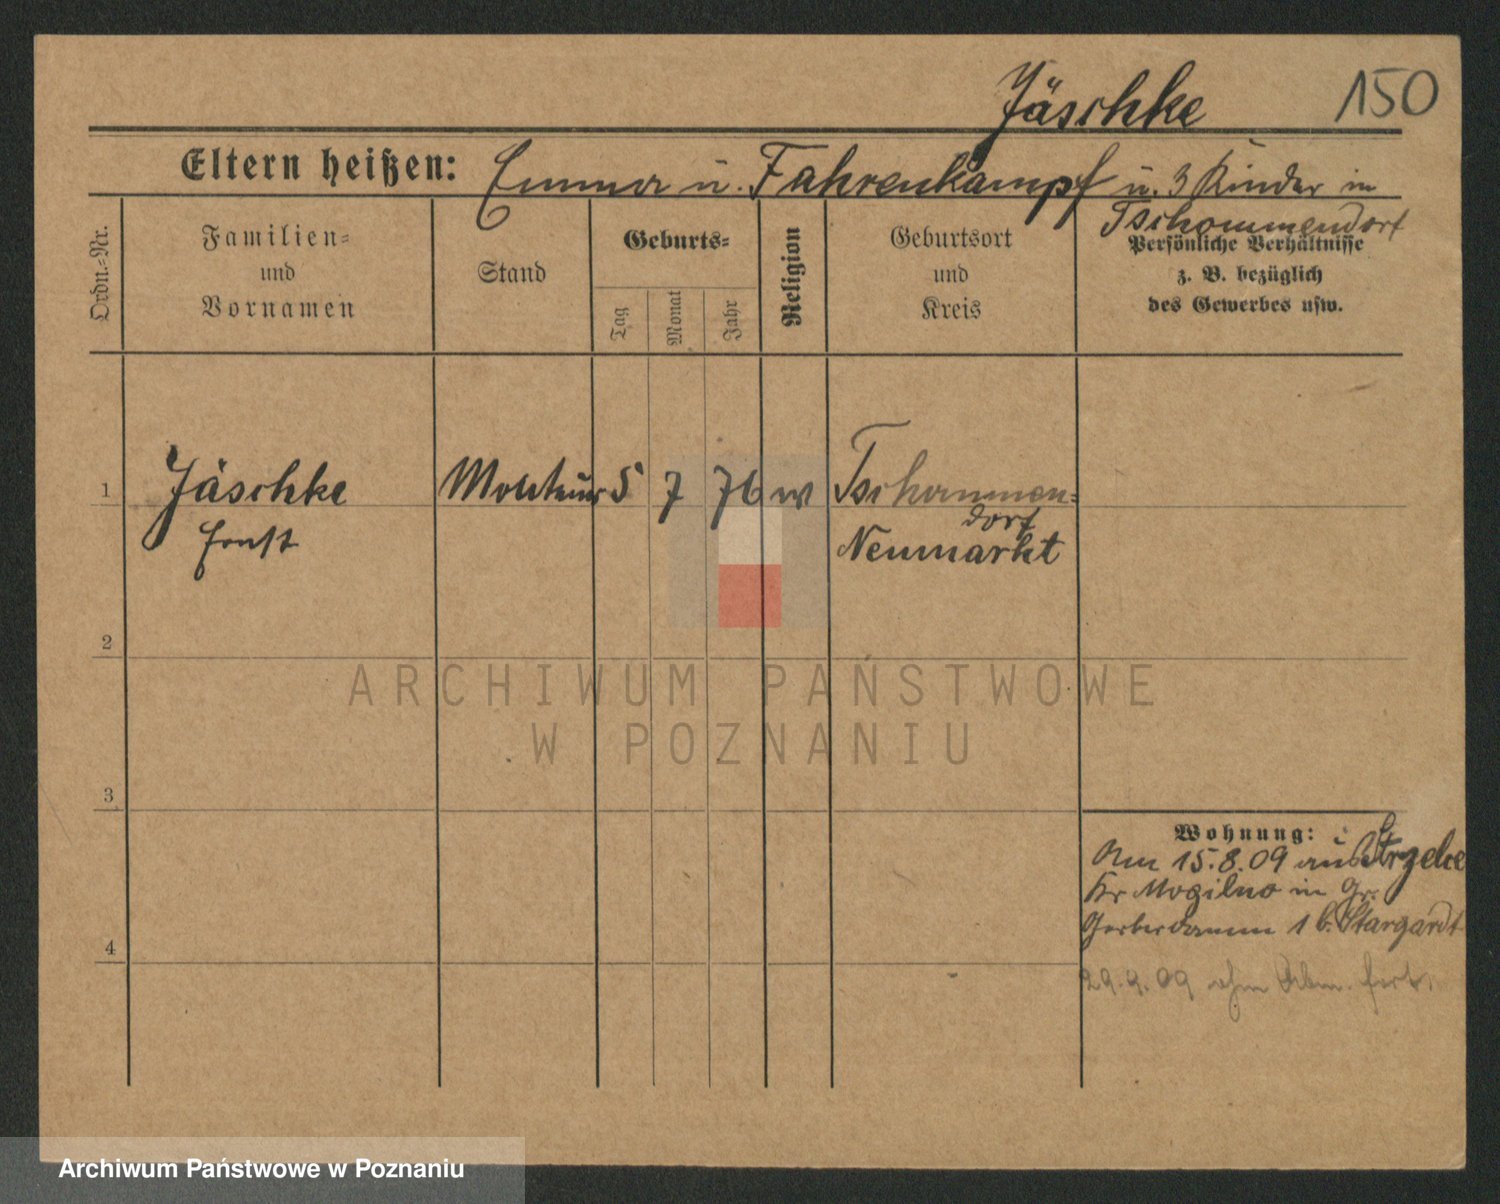 Jäschke 150
Eltern heißen: Emma u. Fahrenkampf u. 3 Kinder in
Tschommendorf
Ordn.-Nr.
Familien-
und
Vornamen
Stand
Geburts-
Tag
Monat
Jahr
Religion
Geburtsort
und
Kreis
Persönliche Verhältnisse
z. B. bezüglich
des Gewerbes usw.
1 Jäschke Monteur 5 7 76 w Tschammen-
dorf
Ernst Neumarkt
2
ARCHIWUM PAŃSTWOWE
W POZNANIU
3
Wohnung:
Am 15.8.09 aus Strzelce
Kr Mogilno in Gr.
Gerberdamm 1 b. Stargardt
4
29.9.09 ohne Abm. fort.
Archiwum Państwowe w Poznaniu